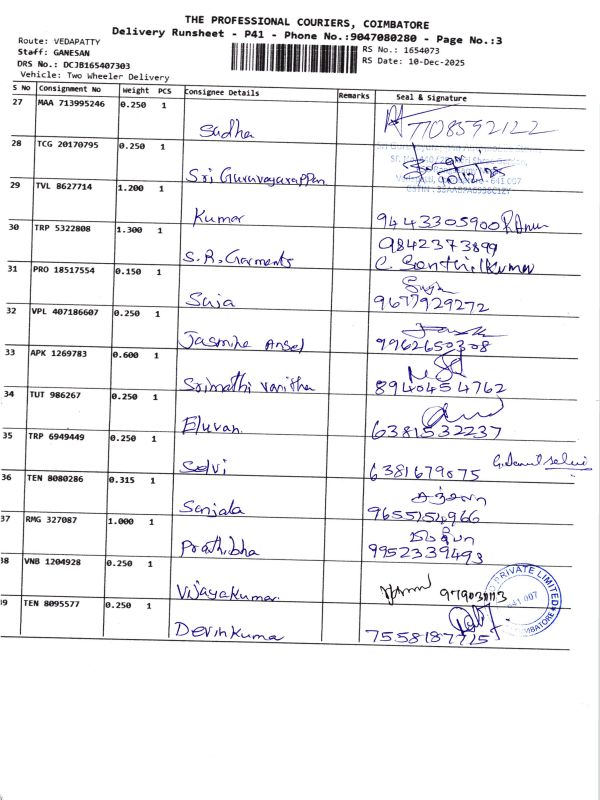 THE PROFESSIONAL COURIERS, COIMBATORE
Delivery Runsheet - P41 - Phone No.:9047080280 - Page No.:3
Route: VEDAPATTY
Staff: GANESAN
RS No.: 1654073
DRS No.: DCJB165407303
RS Date: 10-Dec-2025
Vehicle: Two Wheeler Delivery
S No Consignment No Weight PCS Consignee Details Remarks Seal & Signature
27 MAA 713995246 0.250 1
Sudha 7708592122
28 TCG 20170795 0.250 1
Sri Guruvayurappan 10/12/25
29 TVL 8627714 1.200 1
Kumar 9443305900
30 TRP 5322808 1.300 1
9842373899
S.R. Garments C. Senthilkumar
31 PRO 18517554 0.150 1
Suja 9677929272
32 VPL 407186607 0.250 1
Jasmine Ansel 9962650308
33 APK 1269783 0.600 1
Srimathi Vanitha 8940454762
34 TUT 986267 0.250 1
Eluvan 6381532237
35 TRP 6949449 0.250 1
Selvi 6381679075
36 TEN 8080286 0.315 1
Sanjala 9655154966
37 RMG 327087 1.000 1
Prathibha 9952339493
38 VNB 1204928 0.250 1
PRIVATE LIMITED
641 007
COIMBATORE
Vijayakumar
39 TEN 8095577 0.250 1
Devinkuma 7558187715